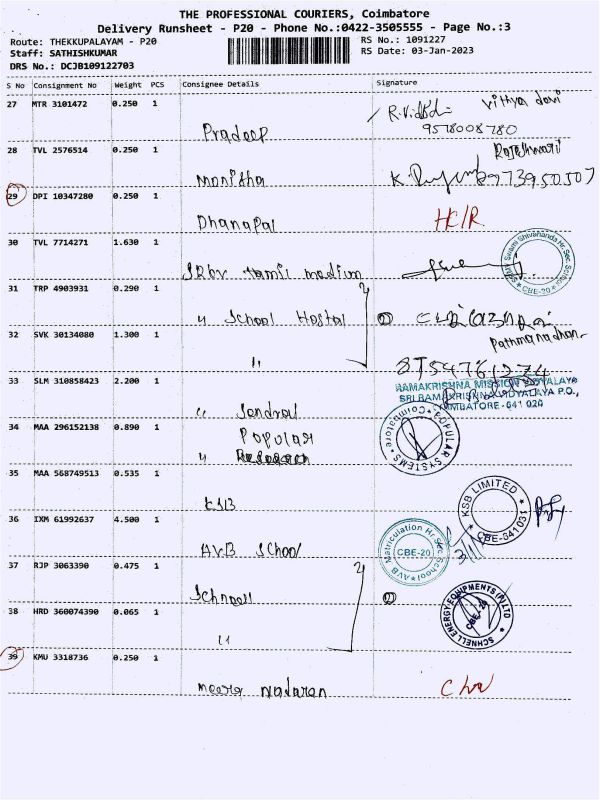 THE PROFESSIONAL COURIERS, Coimbatore
Delivery Runsheet - P20 - Phone No.:0422-3505555 - Page No.:3
Route: THEKKUPALAYAM - P20 RS No.: 1091227
Staff: SATHISHKUMAR RS Date: 03-Jan-2023
DRS No.: DCJB109122703
S No Consignment No Weight PCS Consignee Details Signature
27 MTR 3101472 0.250 1
Vithya devi
9578008780
Pradeep
28 TVL 2576514 0.250 1
Rajeshwari
Monisha
29 DPI 10347280 0.250 1
Dhanapal HC/R
30 TVL 7714271 1.630 1
SRKV Tamil medium
SRMV Swami Shivananda Hr. Sec. School CBE-20
31 TRP 4903931 0.290 1
" School Hostal
32 SVK 30134080 1.300 1
Pathmanadhan
"
33 SLM 310858423 2.200 1
RAMAKRISHNA MISSION VIDYALAYA
SRI RAMAKRISHNA VIDYALAYA P.O.,
COIMBATORE-641 020
"
34 MAA 296152138 0.890 1
Popular
POPULAR SYSTEMS Coimbatore
35 MAA 568749513 0.535 1
KSB
KSB LIMITED CBE-641031
36 IXM 61992637 4.500 1
AVB School
AVB Matriculation Hr. Sec. School CBE-20
3/1
37 RJP 3063390 0.475 1
Schnell
38 HRD 360074390 0.065 1
"
SCHNELL ENERGY EQUIPMENTS (P) LTD
39 KMU 3318736 0.250 1
meera nadaren